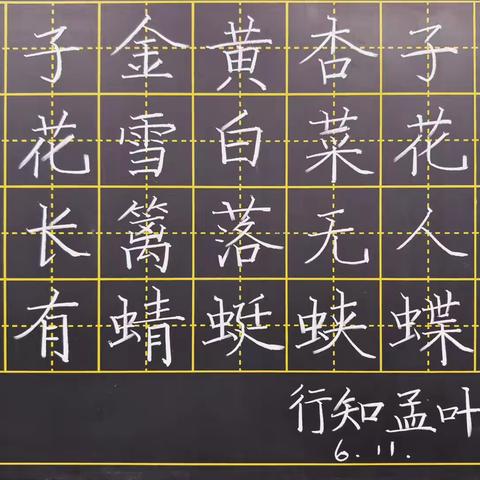 子金黄杏子
花雪白菜花
长篱落无人
有蜻蜓蛱蝶
行知孟叶
6.11.